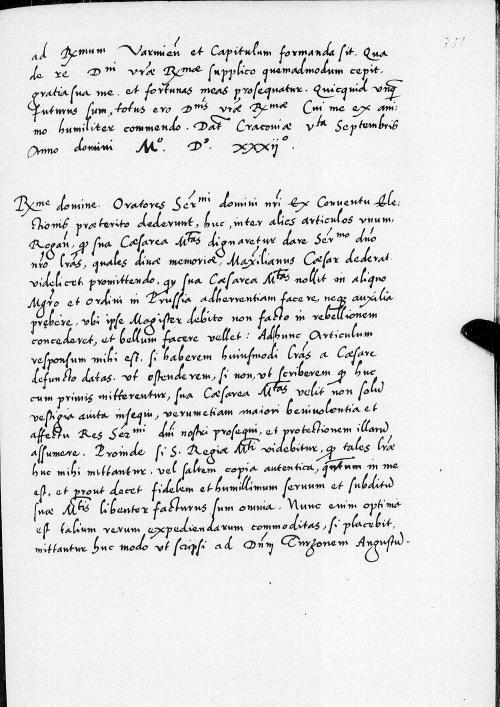 ad Rmum Varmieñ et Capitulum formanda sit. Qua
de re Dni vrãe Rmae supplico quemadmodum cepit,
gratia sua me et fortunas meas prosequatur. Quicquid vnq
futurus sum, totus ero Dnis vrãe Rmae Cui me ex ani,
mo humiliter commendo. Dat Cracoviæ vta Septembris
Anno domini Mo. Do. xxxijo.
Rme domine. Oratores Sermi domini nri Ex Conuentu Ele,
ctionis præterito dederunt, huc, inter alios articulos vnum.
Rogañ, qp sua Cæsarea Mtas dignaretur dare Sermo dño
nro lrãs, quales diuæ memoriæ, Maxilianus Cæsar dederat
videlicet promittendo, qp sua Cæsarea Mtas nollit in aliquo
Mgro et Ordini in Prussia adherrentiam facere, neqz auxilia
prębere, vbi ipse Magister debito non facto in rebellionem
concederet, et bellum facere vellet: Adhunc Articulum
responsum mihi est, si haberem huiusmodi lrãs a Cæsare
defuncto datas. ut ostenderem, si non, ut scriberem qp huc
cum primis mitterentur, sua Cæsarea Mtas velit non solũ
vestigia auita insequi, verumetiam maiori beniuolentia et
affectu Res Sermi dni nostri prosequi, et protectionem illarũ
assumere. Proinde si S. Regiæ Mti videbitur, qp tales lrãe
huc mihi mittantur, vel saltem copia autentica, quantum in me
est, et prout decet fidelem et humillimum seruum et subditũ
suæ Mtis libenter facturus sum omnia. Nunc enim optima
est talium rerum expediendarum commoditas, si placebit,
mittantur huc modo ut scripsi ad Dnm Turzonem Augustũ.